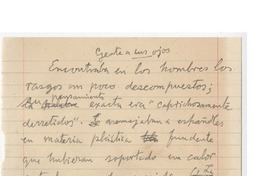 Gente a sus ojos
Encontraba en los hombres los
rasgos un poco descompuestos;
su pensamiento
exacta era "caprichosamente
derretidos". Le asemejaban a españoles
en materia plástica fundente
que hubieran soportado un calor